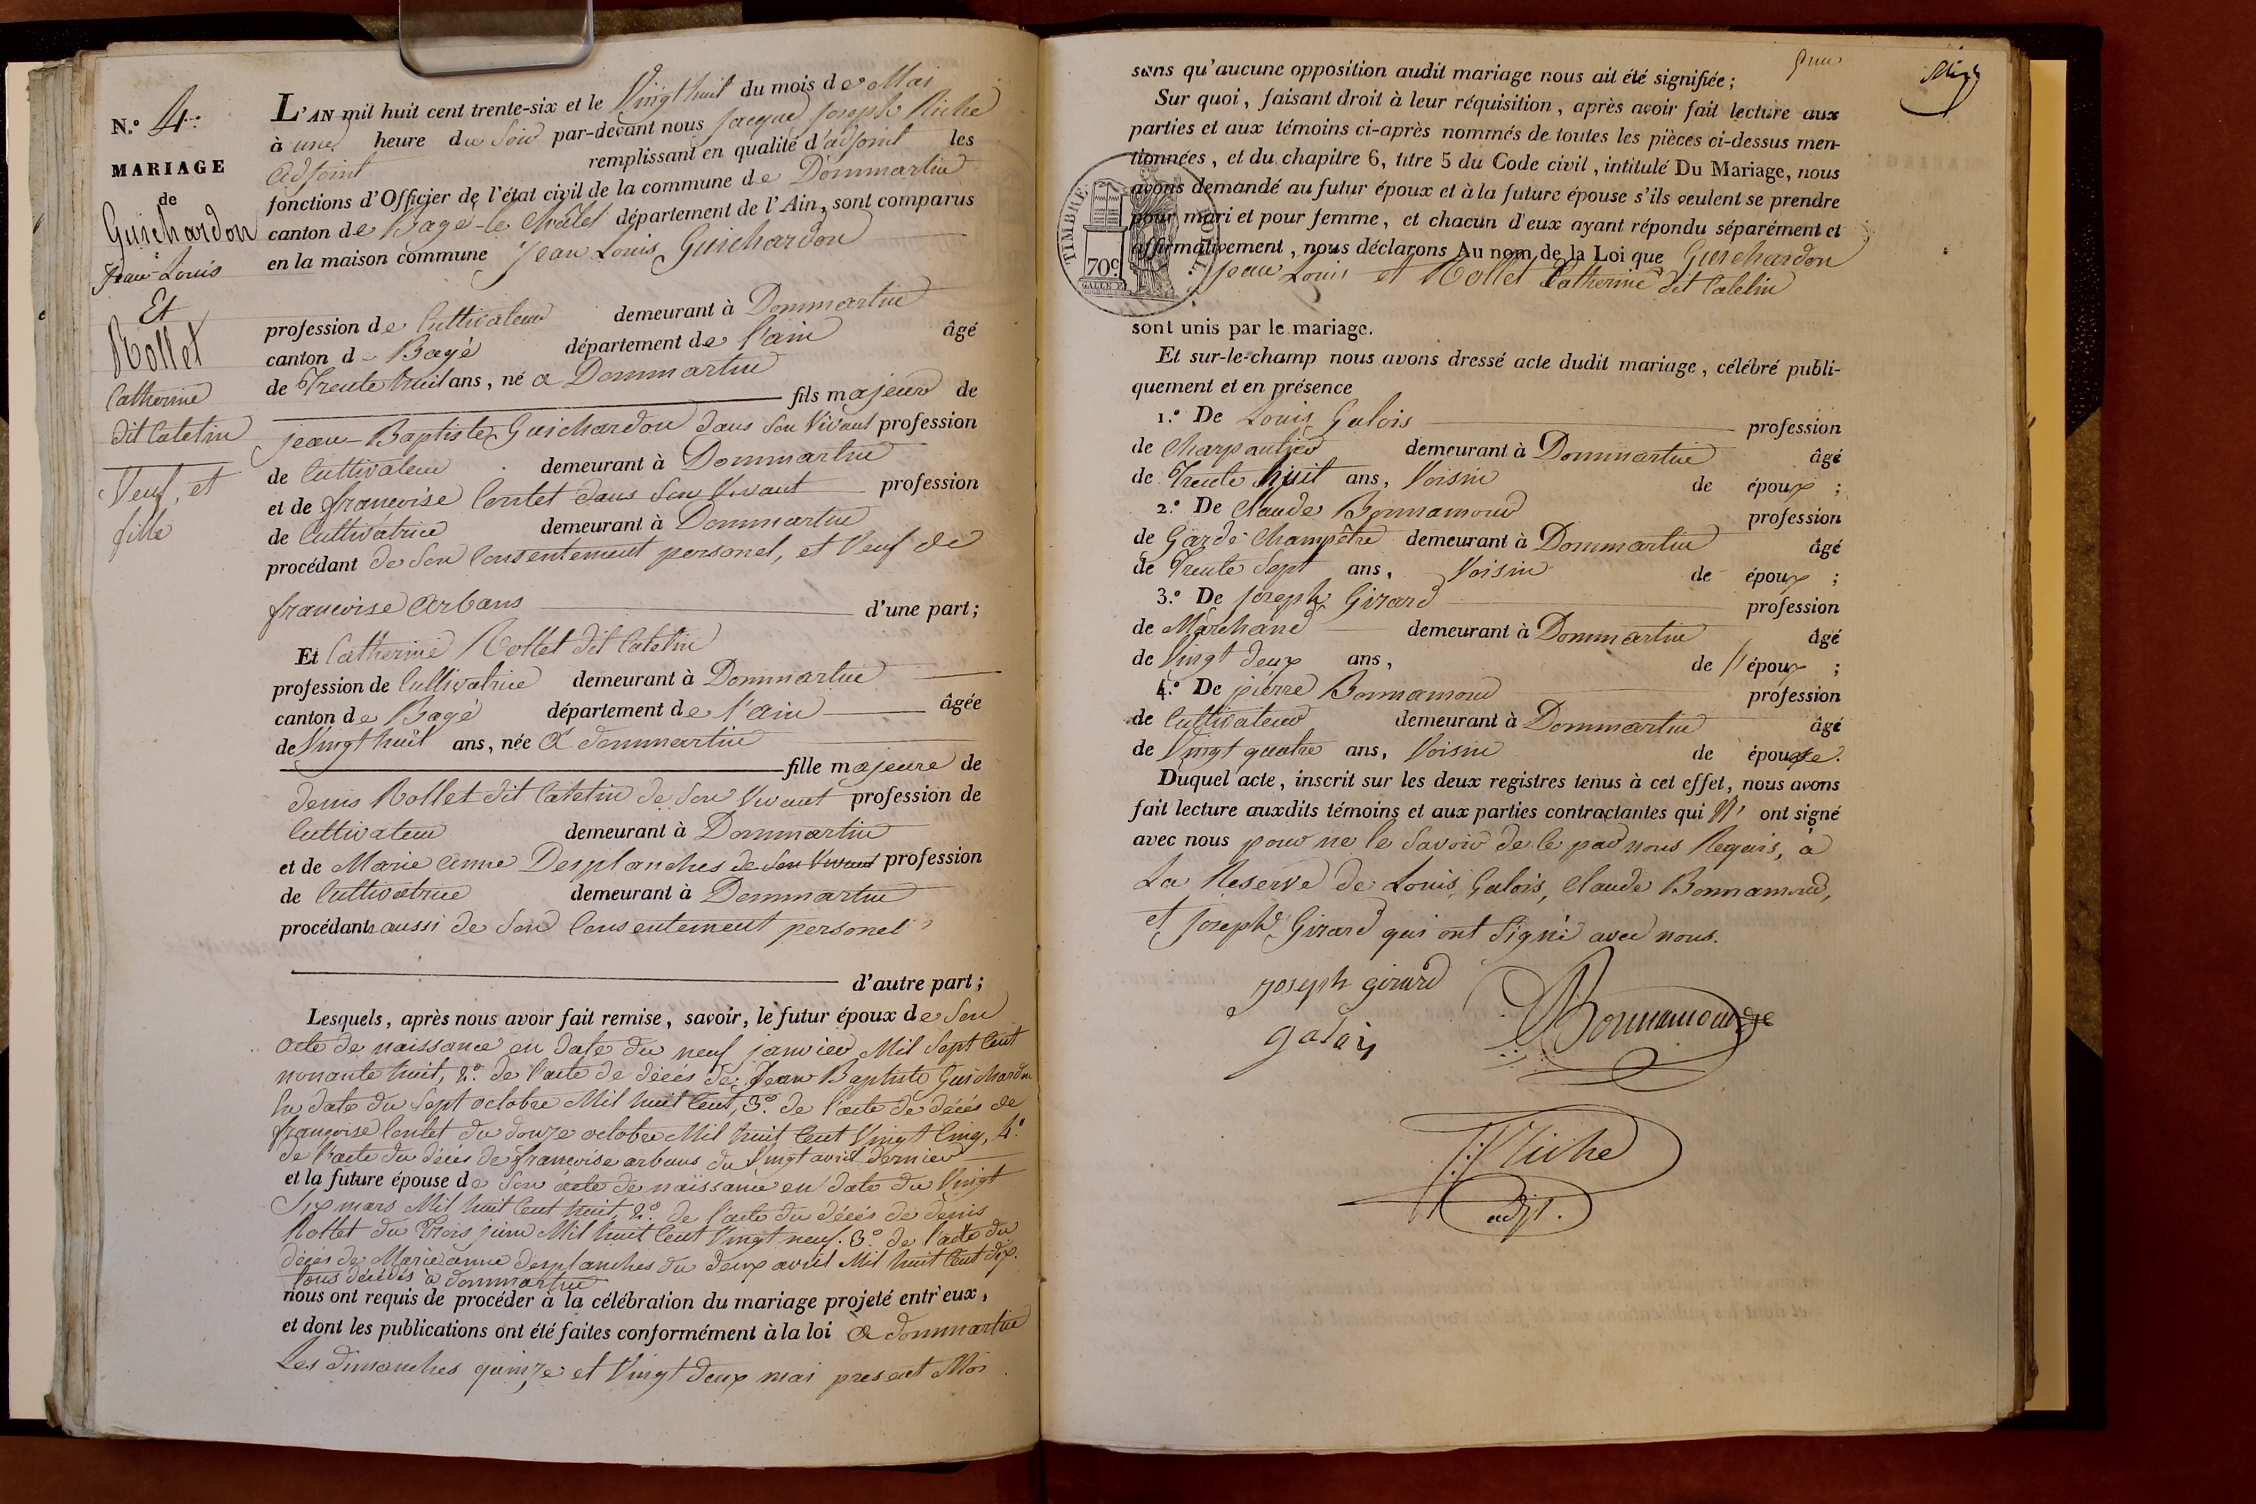 N.º 4.
MARIAGE
de
Guichardon
Jean Louis
Et
Rollet
Catherine
dit Catelin
Veuf, et
fille
L'AN mil huit cent trente-six et le Vingt huit du mois de Mai
à une heure du Soir par-devant nous Jacque Joseph Riche
adjoint remplissant en qualité d'adjoint les
fonctions d'Officier de l'état civil de la commune de Dommartin
canton de Bagé-le Châtel département de l'Ain, sont comparus
en la maison commune Jean Louis Guichardon
profession de Cultivateur demeurant à Dommartin
canton de Bagé département de l'ain âgé
de Trente huit ans, né a Dommartin
fils majeur de
jean-Baptiste Guichardon dans son Vivant profession
de Cultivateur demeurant à Dommartin
et de francoise Contet dans son Vivant profession
de Cultivatrice demeurant à Dommartin
procédant de Son Consentement personel, et Veuf de
francoise arbans d'une part;
Et Catherine Rollet dit Catelin
profession de Cultivatrice demeurant à Dommartin
canton de Bagé département de l'ain âgée
de Vingt huit ans, née a dommartin
fille majeure de
denis Rollet dit Catelin de son Vivant profession de
Cultivateur demeurant à Dommartin
et de Marie anne Desplanches de son Vivant profession
de Cultivatrice demeurant à Dommartin
procédant aussi de Son Consentement personel
d'autre part;
Lesquels, après nous avoir fait remise, savoir, le futur époux de Son
acte de naissance en date du neuf janvier Mil Sept Cent
nonante huit, 2.º de l'acte de décés de Jean Baptiste Guichardon
En date du Sept octobre Mil huit Cent, 3.º de l'acte de décés de
françoise Contet du douze octobre Mil huit Cent Vingt Cinq, 4.º
de l'acte du décés de francoise arbans du Vingt avril dernier
et la future épouse de Son acte de naissance en date du Vingt
Six mars Mil huit Cent huit, 2.º de l'acte du décés de denis
Rollet du Trois juin Mil huit Cent Vingt neuf. 3.º de l'acte du
décés de Marie anne desplanches du deux avril Mil huit Cent dix.
tous décédés à dommartin
nous ont requis de procéder à la célébration du mariage projeté entr'eux,
et dont les publications ont été faites conformément à la loi a dommartin
Les dimanches quinze et Vingt deux mai present Moi
sans qu'aucune opposition audit mariage nous ait été signifiée;
Sur quoi, faisant droit à leur réquisition, après avoir fait lecture aux
parties et aux témoins ci-après nommés de toutes les pièces ci-dessus men-
tionnées, et du chapitre 6, titre 5 du Code civil, intitulé Du Mariage, nous
avons demandé au futur époux et à la future épouse s'ils veulent se prendre
pour mari et pour femme, et chacun d'eux ayant répondu séparément et
affirmativement, nous déclarons Au nom de la Loi que Guichardon
Jean Louis et Rollet Catherine dit Catelin
TIMBRE
ROYAL
70c
sont unis par le mariage.
Et sur-le-champ nous avons dressé acte dudit mariage, célébré publi-
quement et en présence
1.º De Louis Galois profession
de Charpentier demeurant à Dommartin âgé
de Trente huit ans, Voisin de époux;
2.º De Claude Bonnamour profession
de Garde-Champêtre demeurant à Dommartin âgé
de Trente Sept ans, Voisin de époux;
3.º De joseph Girard profession
de Marchand demeurant à Dommartin âgé
de Vingt deux ans, de l'époux;
4.º De pierre Bonnamour profession
de Cultivateur demeurant à Dommartin âgé
de Vingt quatre ans, Voisin de épouse.
Duquel acte, inscrit sur les deux registres tenus à cet effet, nous avons
fait lecture auxdits témoins et aux parties contractantes qui N' ont signé
avec nous pour ne le Savoir de le par nous Requis, à
La Reserve de Louis Galois, Claude Bonnamour,
et joseph Girard qui ont Signé avec nous.
joseph girard
Bonnamour
galoy
J.J. Riche
adjt.